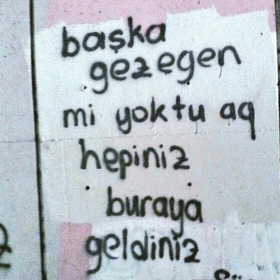 başka
gezegen
mi yoktu aq
hepiniz
buraya
geldiniz